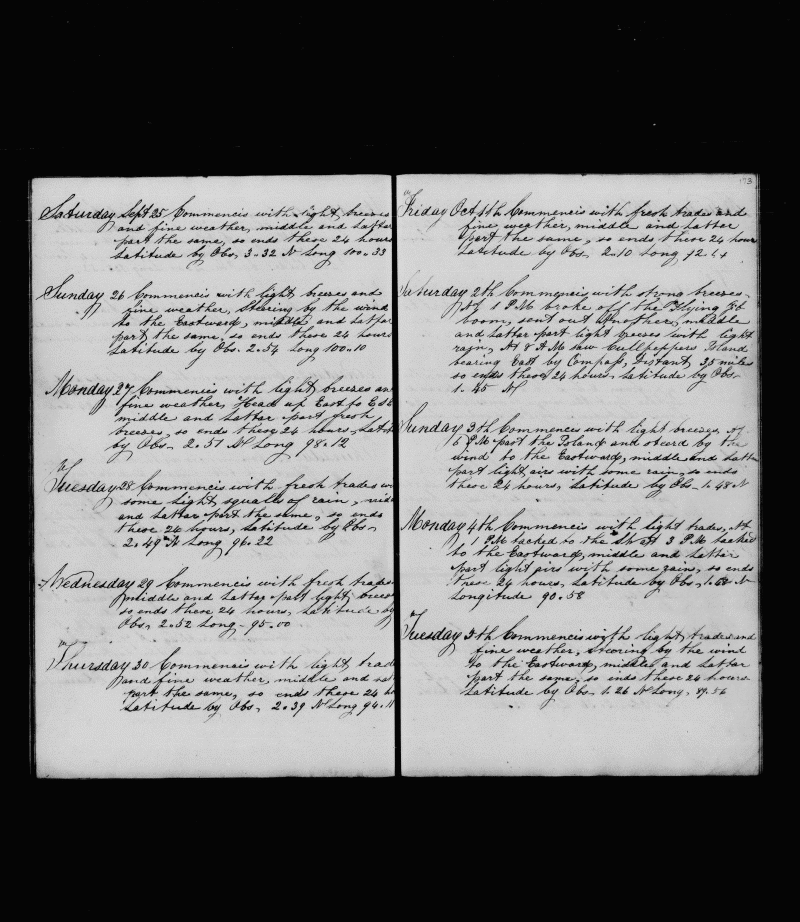 Saturday Sept 25 Commencis with light breezes
and fine weather, middle and Latter
part the same, so ends these 24 hours
Latitude by Obs, 3.32 N Long 100.33
Sunday 26 Commencis with light breezes and
fine weather, Stearing by the wind
to the Eastward, middle and Latter
part the same, so ends these 24 hours
Latitude by Obs. 2.54 Long 100.10
Monday 27 Commencis with light breezes an
fine weather, Head up East to
middle and Latter part fresh
breezes, so ends these 24 hours,
by Obs 2.51 N Long 98.12
Tuesday 28 Commencis with fresh trades
some light squalls of rain,
and Latter part the same, so ends
these 24 hours, Latitude by Obs,
2.49 N Long 96.22
Wednesday 29 Commencis with fresh trades
middle and Latter part light breezes
so ends these 24 hours, Latitude by
Obs, 2.52 Long 95.00
Thursday 30 Commencis with light trad
and fine weather, middle and
part the same, so ends these 24 h
Latitude by Obs, 2.39 N Long 94.11
173
Friday Oct 1th Commencis with fresh trades and
fine weather, middle and Latter
part the same, so ends these 24 hour
Latitude by Obs, 2.10 Long
Saturday 2th Commencis with strong breezes,
At 1 PM broke off the Flying Jib
boom, sent out another, middle
and Latter part light breezes with light
rain, At 8 AM saw Cullpeppers Iland
bearing East by Compass, Distant 35 miles
so ends these 24 hours, Latitude by Obs
1.45 N
Sunday 3th Commences with light breezes, At
6 PM past the Island and steerd by the
wind to the Eastward, middle and Latter
part light airs with some rain, so ends
these 24 hours, Latitude by Obs 1.48 N
Monday 4th Commencis with light trades, At
1 PM tacked to the At 3 PM tacked
to the Eastward, middle and Latter
part light airs with some rain, so ends
these 24 hours, Latitude by Obs, N
Longitude 90.58
Tuesday 5th Commencis with light trades and
fine weather, stearing by the wind
to the Eastward, middle and Latter
part the same, so ends these 24 hours
Latitude by Obs 1.26 N Long, 89.56